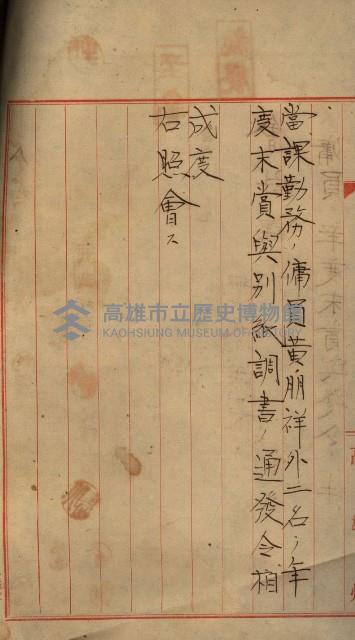 當課勤務ノ傭員黃朋祥外二名ノ年
度末賞與別紙調書ノ通發令相
成度
右照會ス
高雄市立歷史博物館
KAOHSIUNG MUSEUM OF HISTORY